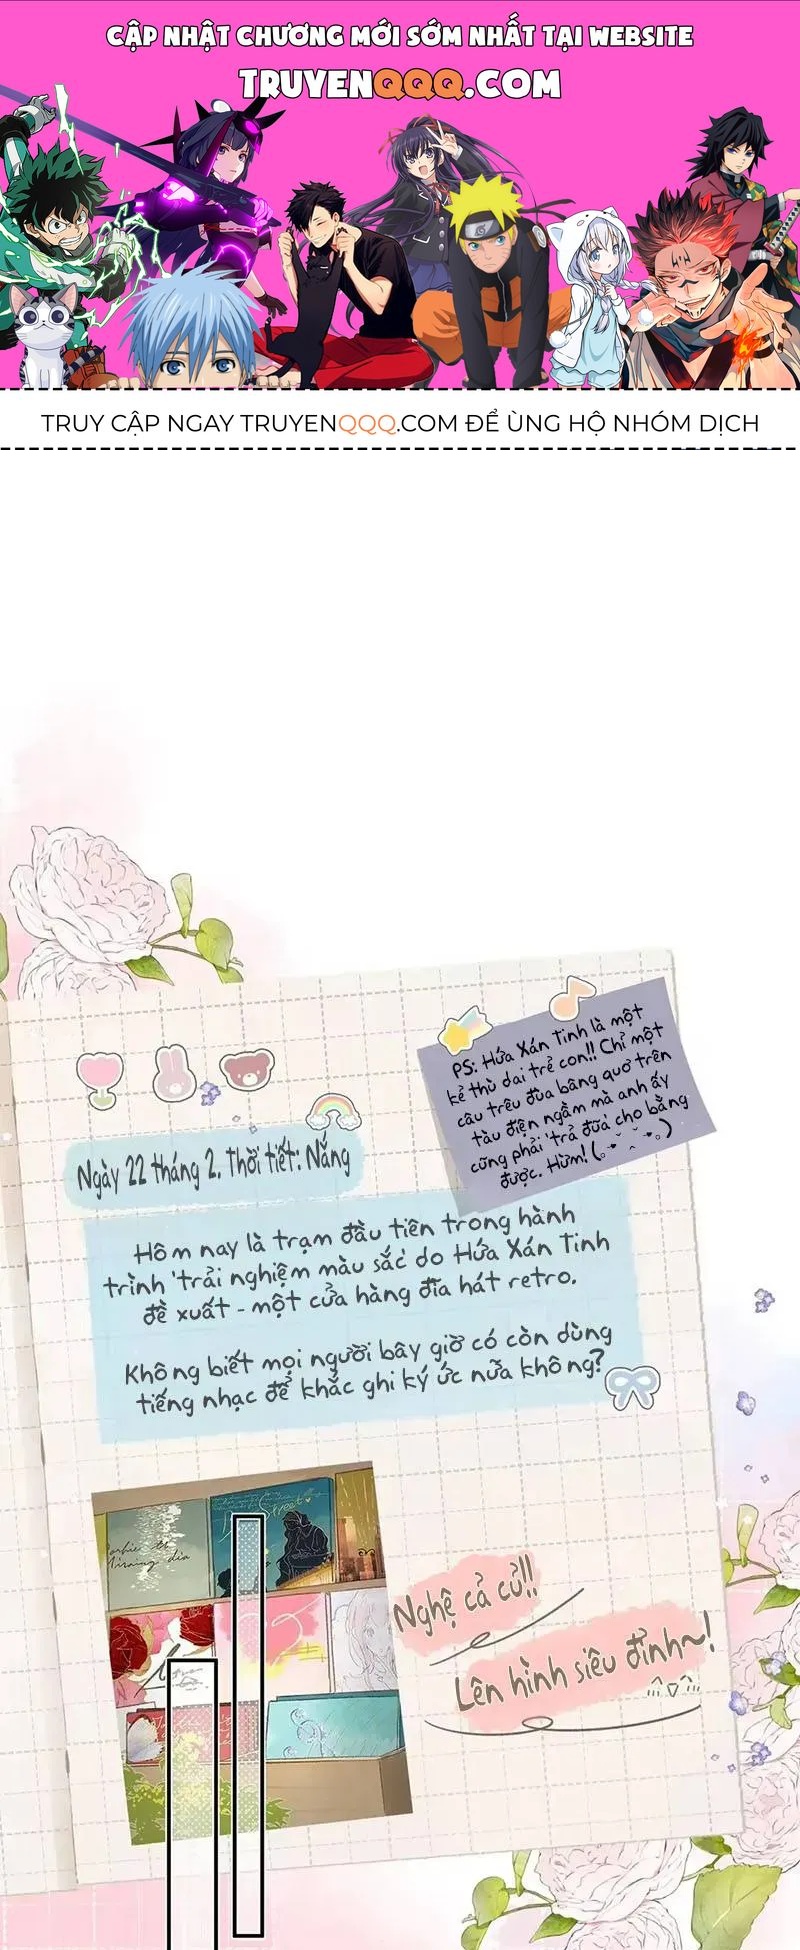 CẬP NHẬT CHƯƠNG MỚI SỚM NHẤT TẠI WEBSITE
TRUYENQQQ.COM
TRUY CẬP NGAY TRUYENQQQ.COM ĐỂ ỦNG HỘ NHÓM DỊCH
PS: Hứa Xán Tinh là một
kẻ thù dai trẻ con!! Chỉ một
câu trêu đùa bâng quơ trên
tàu điện ngầm mà anh ấy
cũng phải 'trả đũa' cho bằng
được. Hừm!
Ngày 22 tháng 2. Thời tiết: Nắng
Hôm nay là trạm đầu tiên trong hành
trình 'trải nghiệm màu sắc' do Hứa Xán Tinh
đề xuất - một cửa hàng đĩa hát retro.
Không biết mọi người bây giờ có còn dùng
tiếng nhạc để khắc ghi ký ức nữa không?
Street
Nghệ cả củ!!
Lên hình siêu đỉnh~!